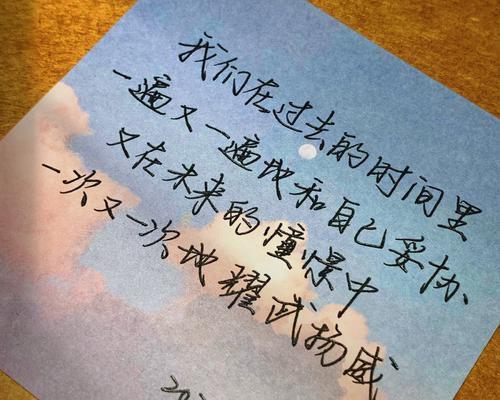 我们在过去的时间里
一遍又一遍地和自己妥协、
又在未来的憧憬中
一次又一次地耀武扬威